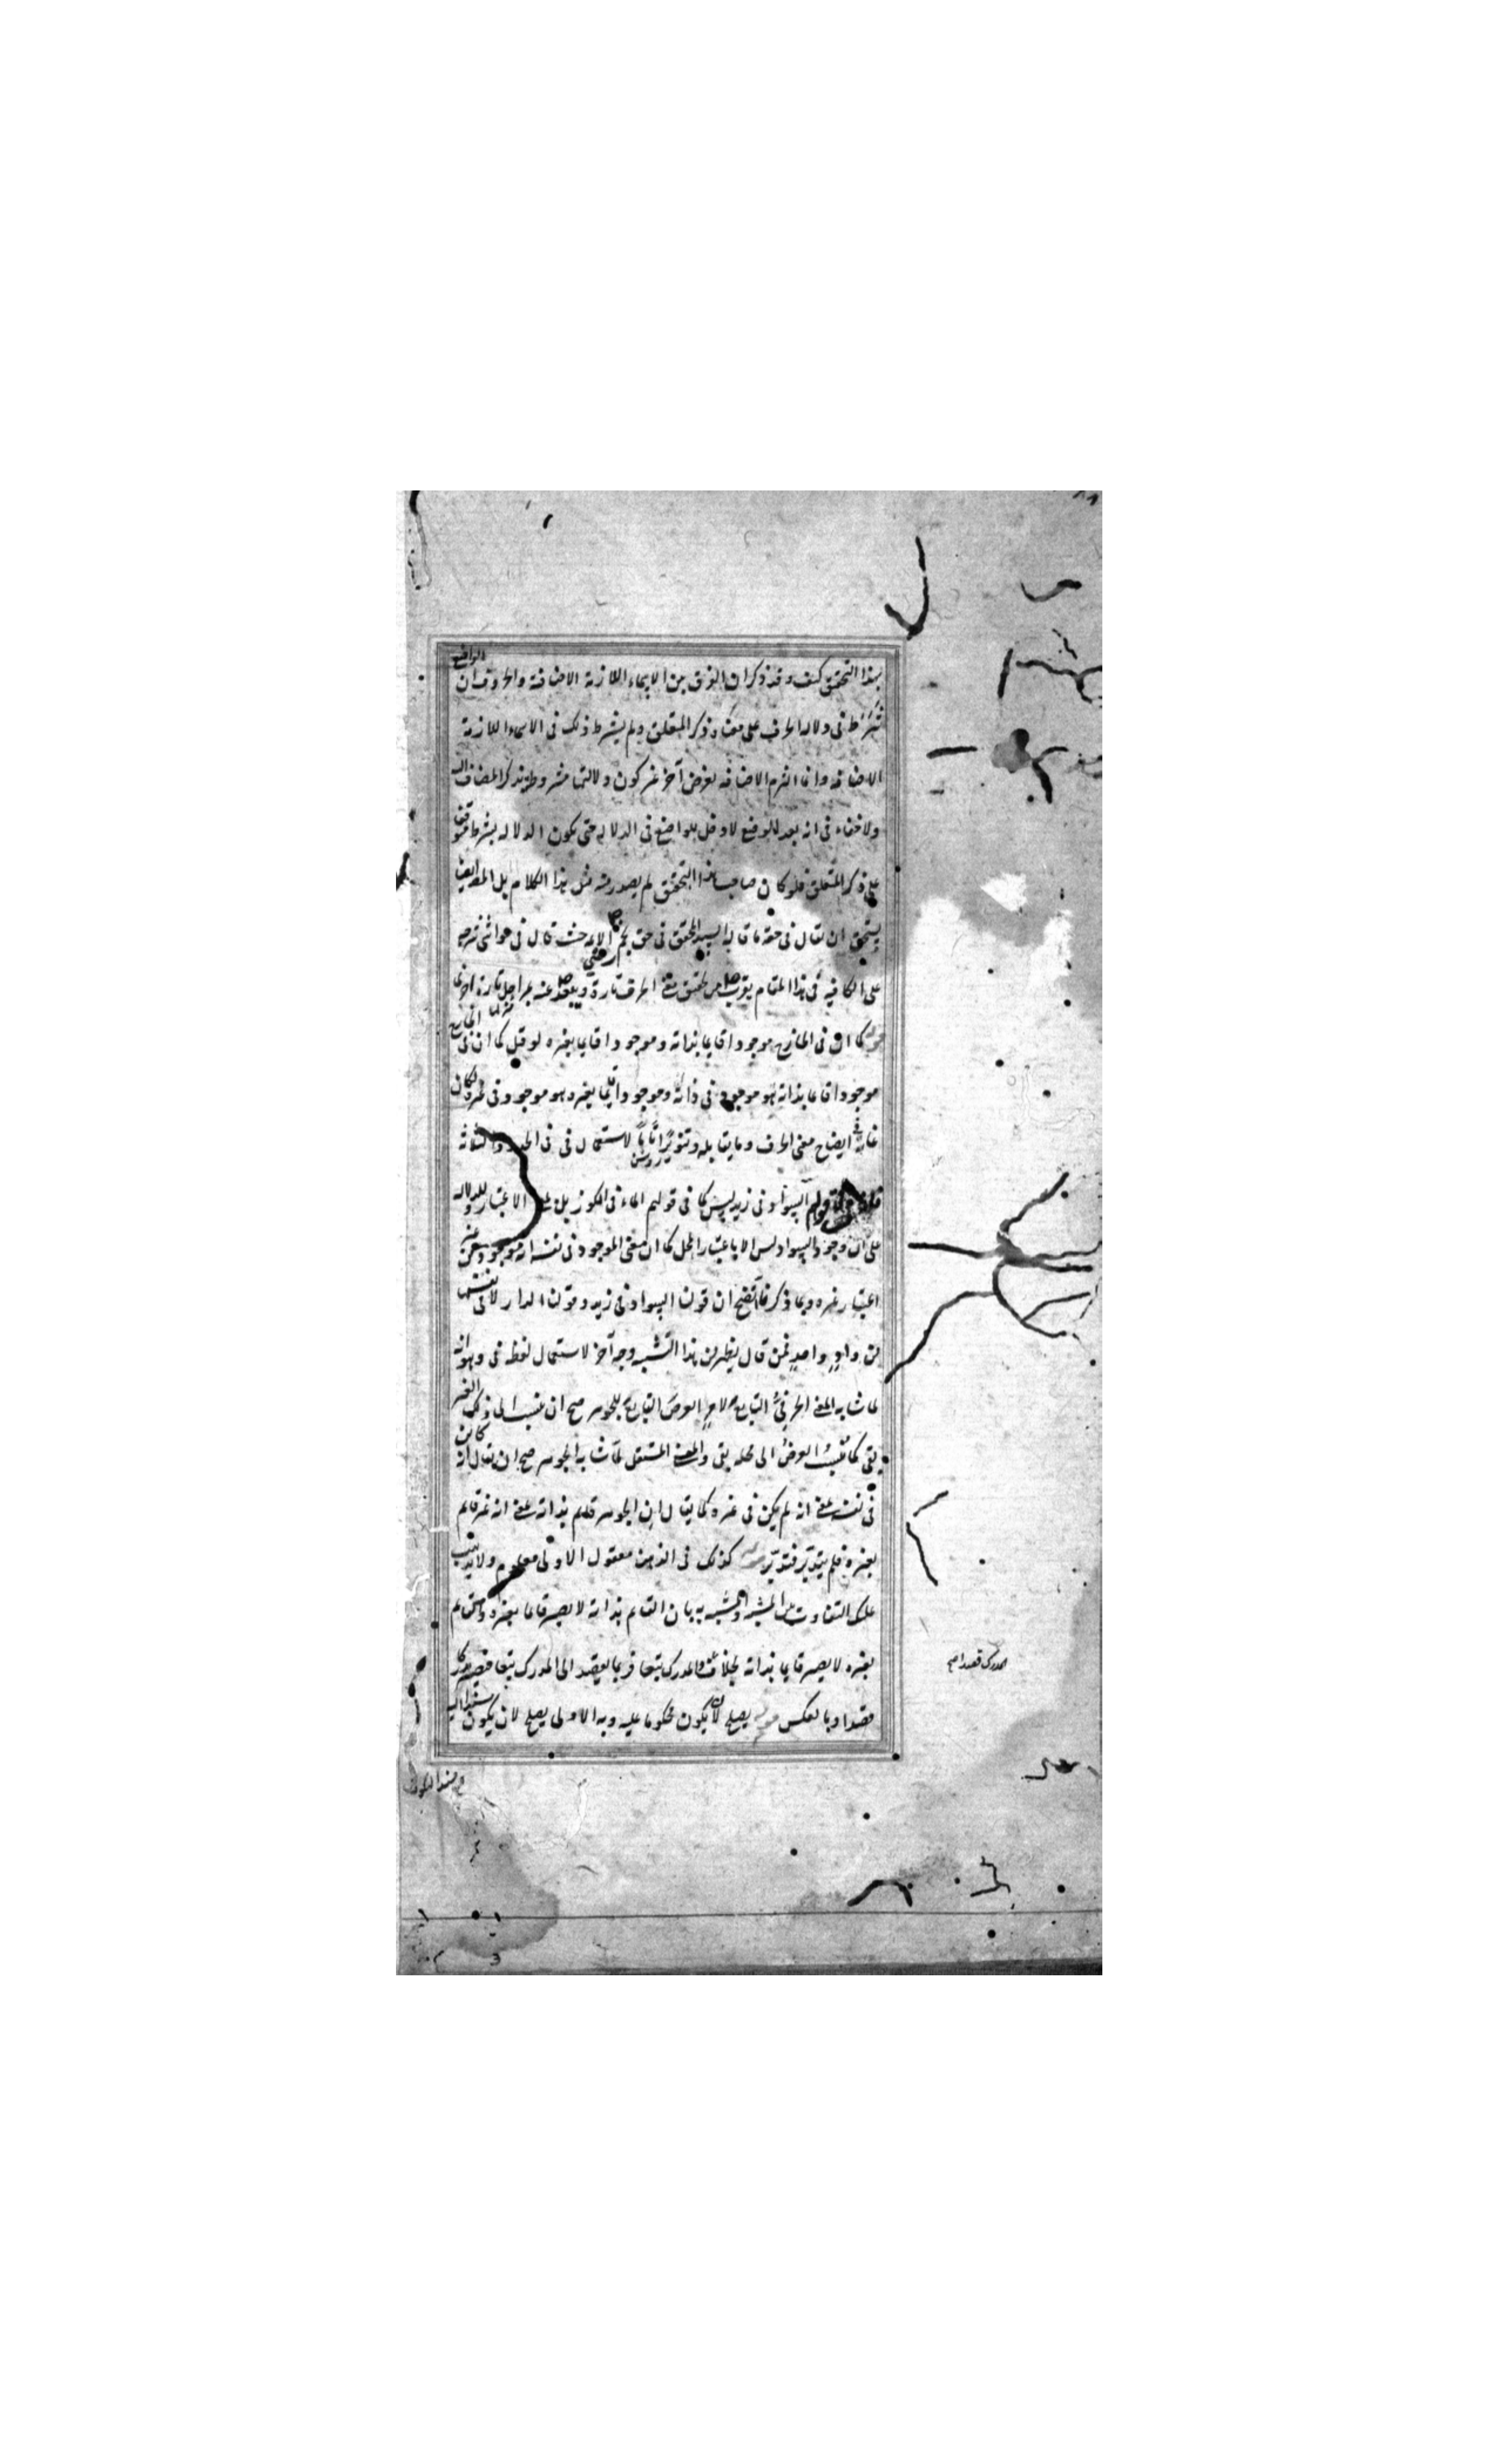 بهذا التحقيق كيف وقد ذكر ان الفرق بين الاسماء اللازمة الاضافة والحروف ان الواضع
شرط فى دلالة الحرف على معناه ذكر المتعلق ولم يشترط ذلك فى الاسماء اللازمة
الاضافة وانما التزم الاضافة لغرض آخر غير كون دلالتها مشروطة بذكر المضاف اليه
ولا خفاء فى انه بعد الوضع لا دخل للواضع فى الدلالة حتى يكون الدلالة بشرط متوقفة
على ذكر المتعلق فلو كان صاحب هذا التحقيق لم يصدر منه مثل هذا الكلام بل المصنف ايضا
يستحق ان يقال فى حقه ما قاله السيد المحقق فى حق نجم الائمة حيث قال فى حواشى شرحه
رضى
على الكافيه فى هذا المقام يقرب من تحقيق معنى الحرف تارة ويبعد عنه بمراحل تارة اخرى
كما ان فى الخارج موجودا قايما بذاته وموجودا قايما بغيره لو قيل كما ان فى الخارج
موجودا قايما بذاته هو موجود فى ذاته وموجودا قايما بغيره هو موجود فى غيره لكان
غاية فى ايضاح معنى الحرف وما يقابله وتنويرا تاما لاستعمال فى فى الحدود الثلاثة
السواد فى زيد ليس كما فى قولهم الماء فى الكوز بل على الاعتبار للدلالة
على ان وجود السواد ليس الا باعتبار المحل كما ان معنى الموجود فى نفسه انه موجود من غير
اعتبار غيره وبما ذكرنا اتضح ان قولنا السواد فى زيد وقولنا الدار لا فى نفس
من واد واحد فمن قال يظهر من هذا التشبيه وجه آخر لاستعمال لفظة فى وهو انه
لما شابه المعنى الحرفى التابع العرض التابع للجوهر صح ان ينسب الى ذلك الغير
بفى كما ينسب العرض الى محله بفى والمعنى المستقل لما شابه الجوهر صح ان يقال انه كاين
فى نفسه بمعنى انه لم يكن فى غيره كما يقال ان الجوهر قايم بذاته بمعنى انه غير قايم
بغيره فلم يتدبر فتدبر قوله كذلك فى الذهن معقول الاولى معلوم ولا يذهب
عليك التفاوت بين المشبه والمشبه به بان القايم بذاته لا يصير قايما بغيره والقايم
بغيره لا يصير قايما بذاته بخلاف المدرك تبعا فربما يقصد الى المدرك تبعا فيصير مدركا
قصدا وبالعكس قوله يصلح لان يكون محكوما عليه وبه الاولى يصلح لان يكون مسندا اليه
المدرك قصدا صح
ومسندا ليكون